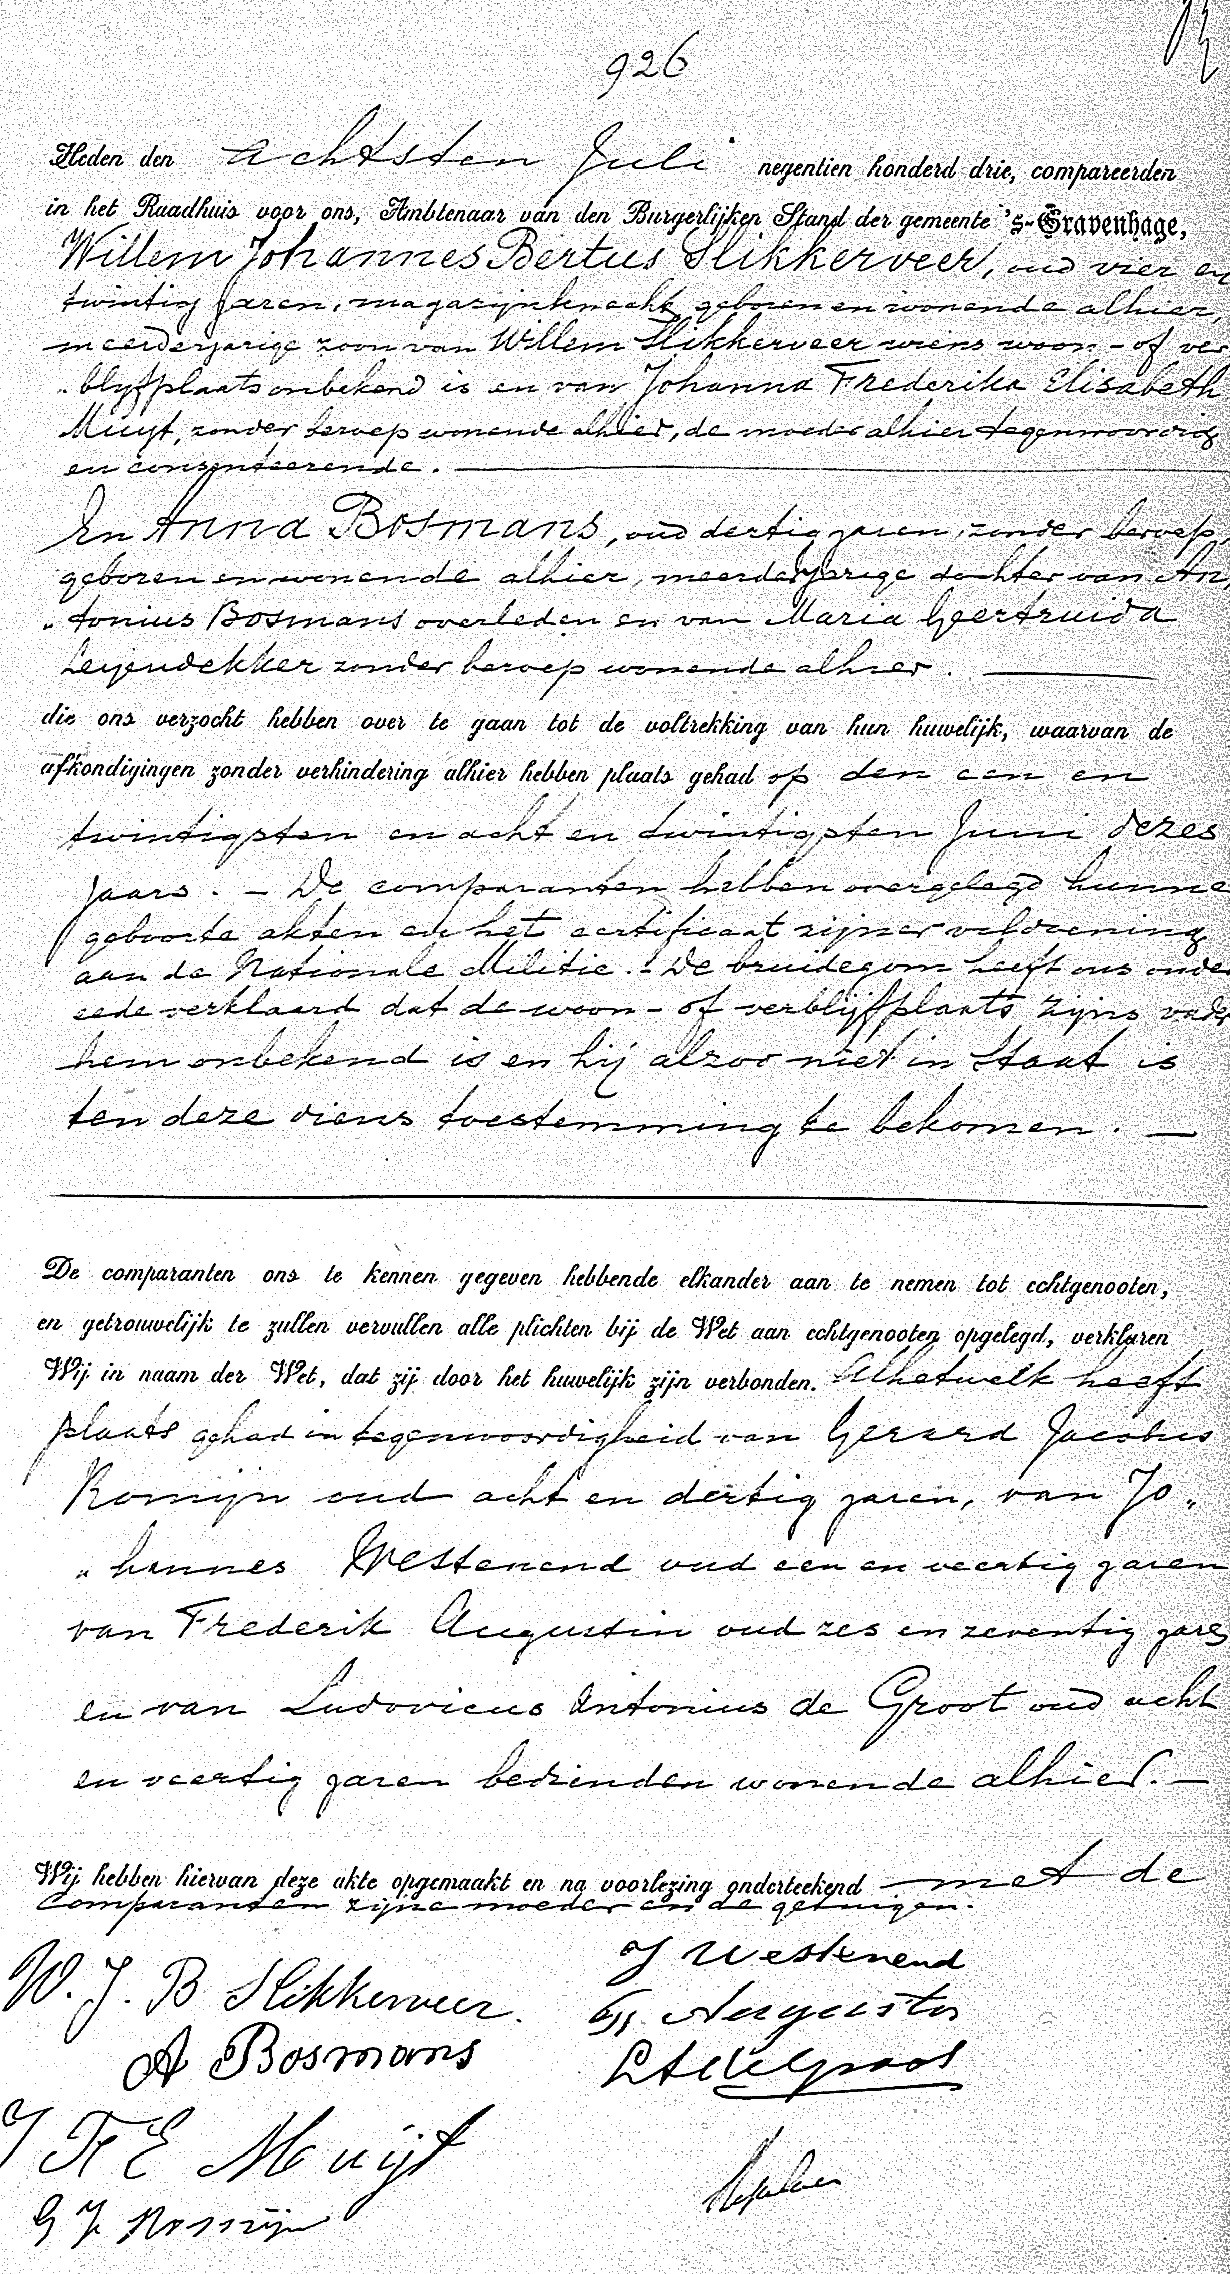 926
Heden den achtsten Juli negentien honderd drie, compareerden
in het Raadhuis voor ons, Ambtenaar van den Burgerlijken Stand der gemeente 's-Gravenhage,
Willem Johannes Bertus Slikkerveer, oud vier en
twintig jaren, magazijnknecht, geboren en wonende alhier,
meerderjarige zoon van Willem Slikkerveer wiens woon- of ver
„blijfplaats onbekend is en van Johanna Frederika Elisabeth
Muijt, zonder beroep wonende alhier, de moeder alhier tegenwoordig
en consenteerende.
En Anna Bosmans, oud dertig jaren, zonder beroep,
geboren en wonende alhier, meerderjarige dochter van An„
„tonius Bosmans overleden en van Maria Geertruida
Leyendekker zonder beroep wonende alhier.
die ons verzocht hebben over te gaan tot de voltrekking van hun huwelijk, waarvan de
afkondigingen zonder verhindering alhier hebben plaats gehad op den een en
twintigsten en acht en twintigsten Juni dezes
jaars. – De comparanten hebben overgelegd hunne
geboorte akten en het certificaat zijner voldoening
aan de Nationale Militie. – De bruidegom heeft ons onder
eede verklaard dat de woon- of verblijfplaats zijns vader
hem onbekend is en hij alzoo niet in staat is
ten deze diens toestemming te bekomen. –
De comparanten ons te kennen gegeven hebbende elkander aan te nemen tot echtgenooten,
en getrouwelijk te zullen vervullen alle plichten bij de Wet aan echtgenooten opgelegd, verklaren
Wij in naam der Wet, dat zij door het huwelijk zijn verbonden. Alhetwelk heeft
plaats gehad in tegenwoordigheid van Gerard Jacobus
Romijn oud acht en dertig jaren, van Jo„
„hannes Westenend oud een en veertig jaren
van Frederik Augustin oud zes en zeventig jaren
en van Ludovicus Antonius de Groot oud acht
en veertig jaren bedienden wonende alhier. –
Wij hebben hiervan deze akte opgemaakt en na voorlezing onderteekend met de
comparanten zijne moeder en de getuigen.
W. J. B Slikkerveer.
J Westenend
A Bosmans
Fr Augustin
L A de Groot
J Fr E Muijt
G J Romijn